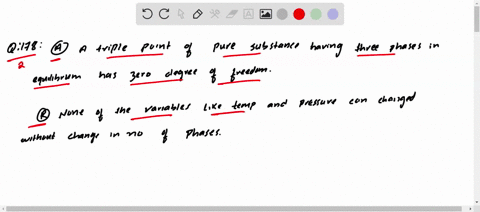 Q:178: (A) A triple point of pure substance having three phases in
2
equilibrium has zero degree of freedom.
(R) None of the variables like temp and pressure can changed
without change in no of phases.